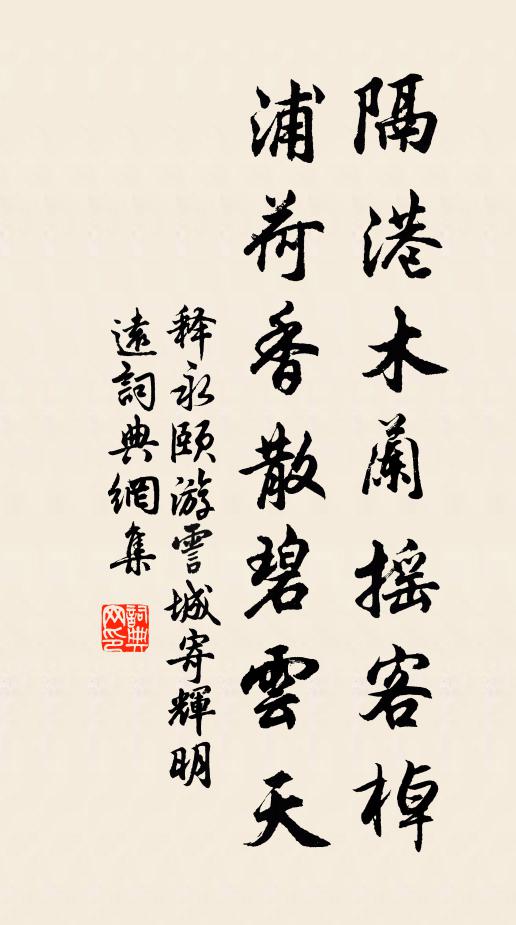 隔港木蘭搖客棹
浦荷香散碧雲天
释永頤游霅城寄輝明
遠詞典網集
詞典網印